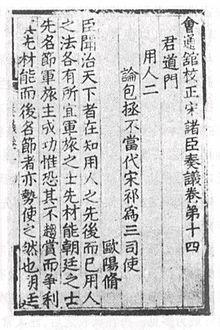 會通舘校正宋諸臣奏議卷第十四
君道門
用人二
論包拯不當代宋祁為三司使
歐陽脩
臣聞治天下者在知用人之先後而已用人
之法各有所宜軍旅之士先材能朝廷之士
先名節軍旅主成功惟恐其不趨賞而争利
其先材能而後名節者亦勢使之然也朝廷